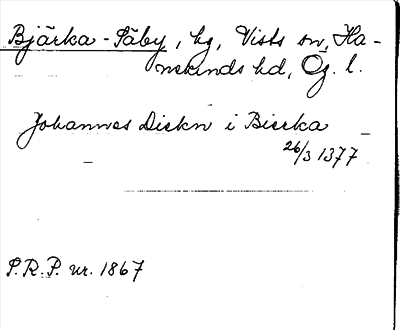 Bjärka-Säby, hg, Vists sn, Ha-
nekinds hd, Ög. l.
Johannes Diekn i Bierka
26/3 1377
S.R.P. nr. 1867